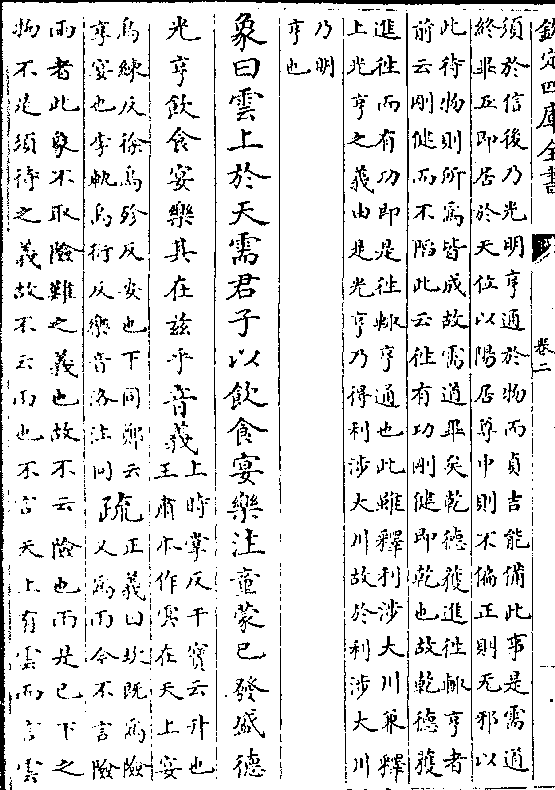 欽定四庫全書
卷二
須於信後乃光明亨通於物而貞吉能備此事是需道
終畢五即居於天位以陽居尊中則不偏正則无邪以
此待物則所為皆成故需道畢矣乾德獲進往輙亨者
前云剛健而不陷此云往有功剛健即乾也故乾德獲
進往而有功即是往輙亨通也此雖釋利涉大川兼釋
上光亨之義由是光亨乃得利涉大川故於利涉大川
乃明
亨也
象曰雲上於天需君子以飲食宴樂注童蒙已發盛德
光亨飲食宴樂其在兹乎音義上時掌反干寳云升也
王肅本作雲在天上宴
烏練反徐烏殄反安也下同鄭云
享宴也李軌烏衍反樂音洛注同疏正義曰坎既為險
又為雨今不言險
雨者此象不取險難之義也故不云險也雨是已下之
物不是須待之義故不云雨也不言天上有雲而言雲